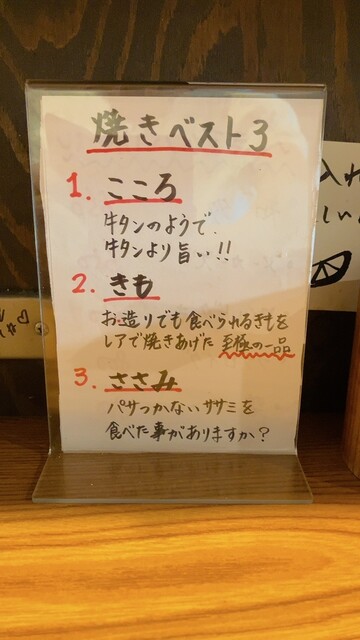 焼きベスト3
1. こころ
牛タンのようで、
牛タンより旨い!!
2. きも
お造りでも食べられるきもを
レアで焼きあげた 至極の一品
3. ささみ
パサつかないササミを
食べた事がありますか?
入れ